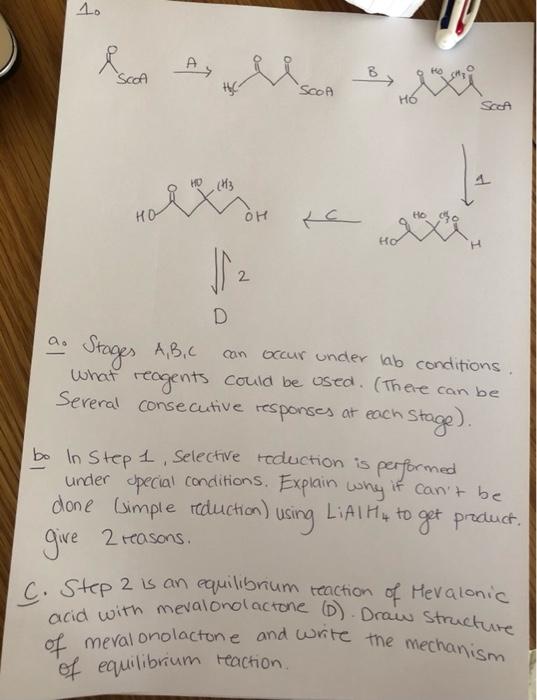 1.
O
SCOA
A
O O
H3C
SCOA
B
O HO CH3 O
HO
SCOA
1
O HO CH3 O
HO
H
C
O HO CH3
HO
OH
2
D
a. Stages A,B,C can occur under lab conditions.
What reagents could be used. (There can be
Several consecutive responses at each stage).
b. In Step 1, Selective reduction is performed
under special conditions. Explain why it can't be
done (simple reduction) using LiAlH4 to get product.
give 2 reasons.
C. Step 2 is an equilibrium reaction of Mevalonic
acid with mevalonolactone (D). Draw Structure
of mevalonolactone and write the mechanism
of equilibrium reaction.